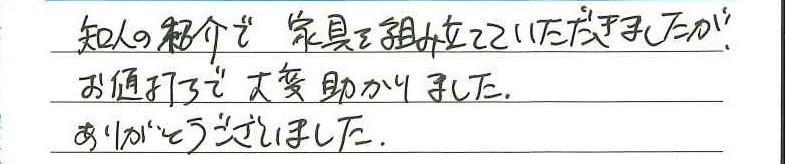 知人の紹介で 家具を組み立てていただきましたが、
お値打ちで 大変 助かりました.
ありがとうございました.